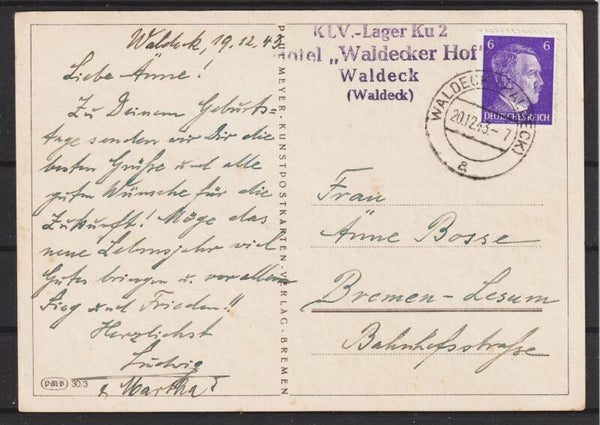 Waldeck, 19.12.43.
Liebe Änne!
Zu Deinem Geburts-
tage senden wir Dir die
besten Grüße und alle
guten Wünsche für die
Zukunft! Möge das
neue Lebensjahr viel
Gutes bringen u. vor allem
Sieg und Frieden!!
Herzlichst
Ludwig
& Martha
PMB 30.3
PAUL MEYER · KUNSTPOSTKARTEN-VERLAG · BREMEN
KLV.-Lager Ku 2
otel „Waldecker Hof"
Waldeck
(Waldeck)
6 6
DEUTSCHES REICH
WALDECK (WALDECK)
20.12.43.- 7
a
Frau
Änne Bosse
Bremen-Lesum
Bahnhofstraße